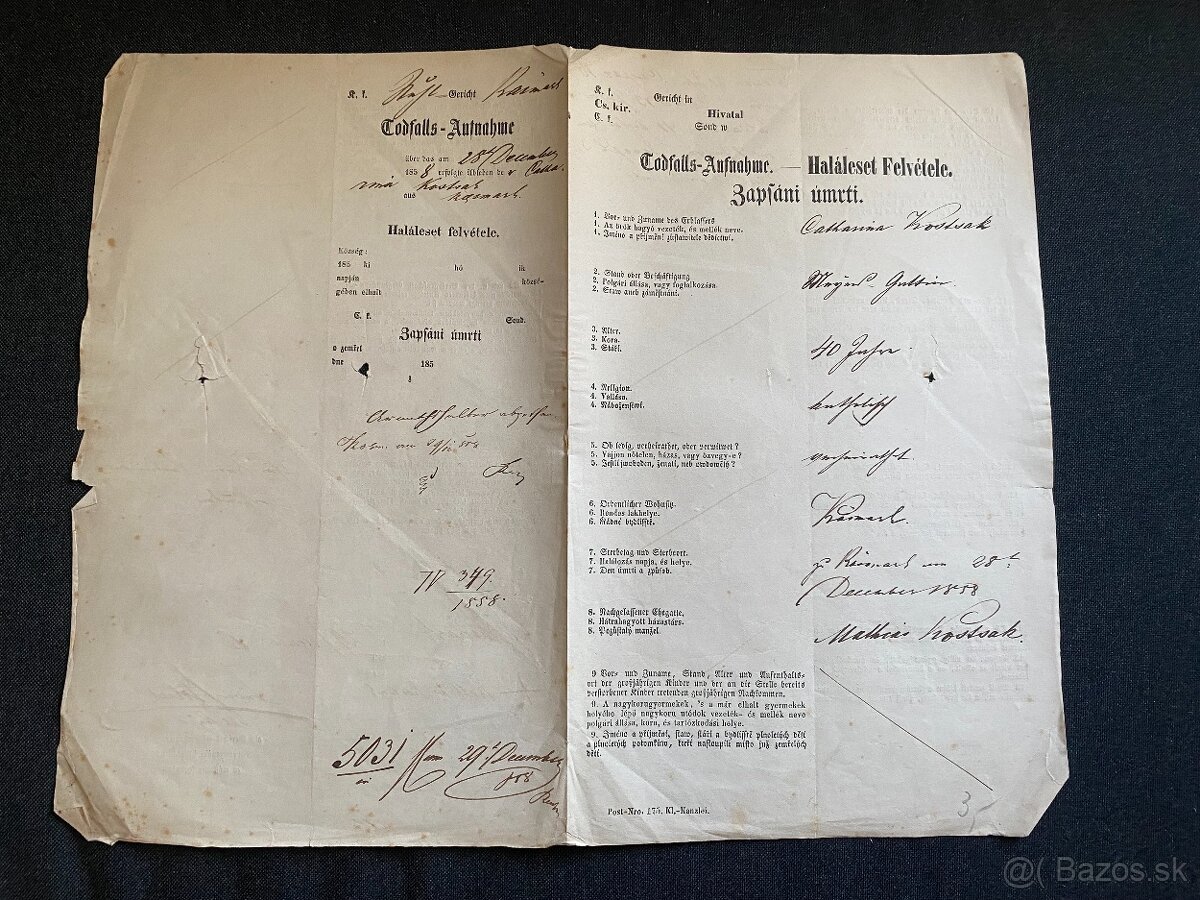 K. k. Gericht
Todfalls-Aufnahme
über das am 28t December
185 8 erfolgte Ableben de r
Kostsak
aus
Haláleset felvétele.
Község:
185 ki hó ik
napján közsé-
gében elhalt
C. k. Saud.
Zapsáni úmrti
o zemřel
dne 185
IV 349
1858.
5031 29t December
858
K. k.
Cs. kir.
C. k.
Gericht in
Hivatal
Saud w
Todfalls-Aufnahme. — Haláleset Felvétele.
Zapsáni úmrti.
1. Vor- und Zuname des Erblassers
1. Az örök hagyó vezeték, és mellék neve.
1. Jméno a přijmění zůstawitele dědictwí.
Catharina Kostsak
2. Stand oder Beschäftigung
2. Polgári állása, vagy foglalkozása.
2. Staw aneb zaměstnáni.
Gattin.
3. Alter.
3. Kora.
3. Stáři.
40 Jahre.
4. Religion.
4. Vallása.
4. Náboženstwí.
katholisch
5. Ob ledig, verheirathet, oder verwitwet?
5. Vajjon nőtelen, házas, vagy özvegy-e?
5. Jestli swoboden, ženatí, neb owdowělý?
verheirathet
6. Ordentlicher Wohnsitz.
6. Rendes lakhelye.
6. Řádné bydliště.
Käsmark.
7. Sterbetag und Sterbeort.
7. Halálozás napja, és helye.
7. Den úmrti a způsob.
zu Käsmark am 28t
December 1858
8. Nachgelassener Ehegatte.
8. Hátrahagyott házastárs.
8. Pozůstalý manžel.
Mathias Kostsak
9 Vor- und Zuname, Stand, Alter und Aufenthalts-
ort der großjährigen Kinder und der an die Stelle bereits
verstorbener Kinder tretenden großjährigen Nachkommen.
9. A nagykorugyermekek, 's a már elhalt gyermekek
helyébe lépő nagykoru utódok vezeték- és mellék neve
polgári állása, kora, és tartózkodási helye.
9. Jméno a přijmění, staw, stáři a bydliště plnoletých dětí
a plnoletých potomkůw, kteří nastoupili místo již zemřelých
dětí.
Post-Nro. 175. Kl.-Kanzlei.
3
@( Bazos.sk